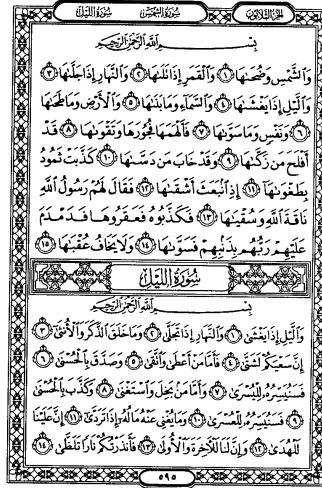 الجزء الثلاثون سورة الشمس سورة الليل
بِسْمِ ٱللَّهِ ٱلرَّحْمَٰنِ ٱلرَّحِيمِ
وَٱلشَّمْسِ وَضُحَىٰهَا ١ وَٱلْقَمَرِ إِذَا تَلَىٰهَا ٢ وَٱلنَّهَارِ إِذَا جَلَّىٰهَا ٣
وَٱلَّيْلِ إِذَا يَغْشَىٰهَا ٤ وَٱلسَّمَآءِ وَمَا بَنَىٰهَا ٥ وَٱلْأَرْضِ وَمَا طَحَىٰهَا
٦ وَنَفْسٍ وَمَا سَوَّىٰهَا ٧ فَأَلْهَمَهَا فُجُورَهَا وَتَقْوَىٰهَا ٨ قَدْ
أَفْلَحَ مَن زَكَّىٰهَا ٩ وَقَدْ خَابَ مَن دَسَّىٰهَا ١٠ كَذَّبَتْ ثَمُودُ
بِطَغْوَىٰهَآ ١١ إِذِ ٱنۢبَعَثَ أَشْقَىٰهَا ١٢ فَقَالَ لَهُمْ رَسُولُ ٱللَّهِ
نَاقَةَ ٱللَّهِ وَسُقْيَٰهَا ١٣ فَكَذَّبُوهُ فَعَقَرُوهَا فَدَمْدَمَ
عَلَيْهِمْ رَبُّهُم بِذَنۢبِهِمْ فَسَوَّىٰهَا ١٤ وَلَا يَخَافُ عُقْبَٰهَا ١٥
سُورَةُ ٱللَّيْلِ
بِسْمِ ٱللَّهِ ٱلرَّحْمَٰنِ ٱلرَّحِيمِ
وَٱلَّيْلِ إِذَا يَغْشَىٰ ١ وَٱلنَّهَارِ إِذَا تَجَلَّىٰ ٢ وَمَا خَلَقَ ٱلذَّكَرَ وَٱلْأُنثَىٰٓ ٣
إِنَّ سَعْيَكُمْ لَشَتَّىٰ ٤ فَأَمَّا مَنْ أَعْطَىٰ وَٱتَّقَىٰ ٥ وَصَدَّقَ بِٱلْحُسْنَىٰ ٦
فَسَنُيَسِّرُهُۥ لِلْيُسْرَىٰ ٧ وَأَمَّا مَنۢ بَخِلَ وَٱسْتَغْنَىٰ ٨ وَكَذَّبَ بِٱلْحُسْنَىٰ
٩ فَسَنُيَسِّرُهُۥ لِلْعُسْرَىٰ ١٠ وَمَا يُغْنِى عَنْهُ مَالُهُۥٓ إِذَا تَرَدَّىٰٓ ١١ إِنَّ عَلَيْنَا
لَلْهُدَىٰ ١٢ وَإِنَّ لَنَا لَلْأَخِرَةَ وَٱلْأُولَىٰ ١٣ فَأَنذَرْتُكُمْ نَارًا تَلَظَّىٰ ١٤
٥٩٥